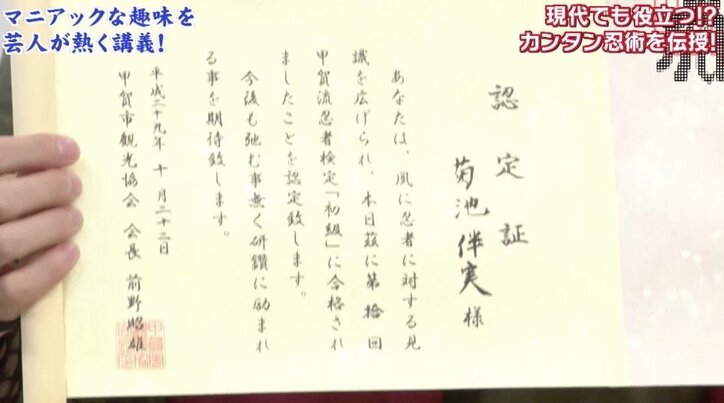 マニアックな趣味を
芸人が熱く講義!
現代でも役立つ!?
カンタン忍術を伝授!
認定証
菊池伴実様
あなたは、夙に忍者に対する見
識を広げられ、本日茲に第拾回
甲賀流忍者検定「初級」に合格され
ましたことを認定致します。
今後も弛む事無く研鑽に励まれ
る事を期待致します。
平成二十九年十月二十二日
甲賀市観光協会 会長 前野昭雄